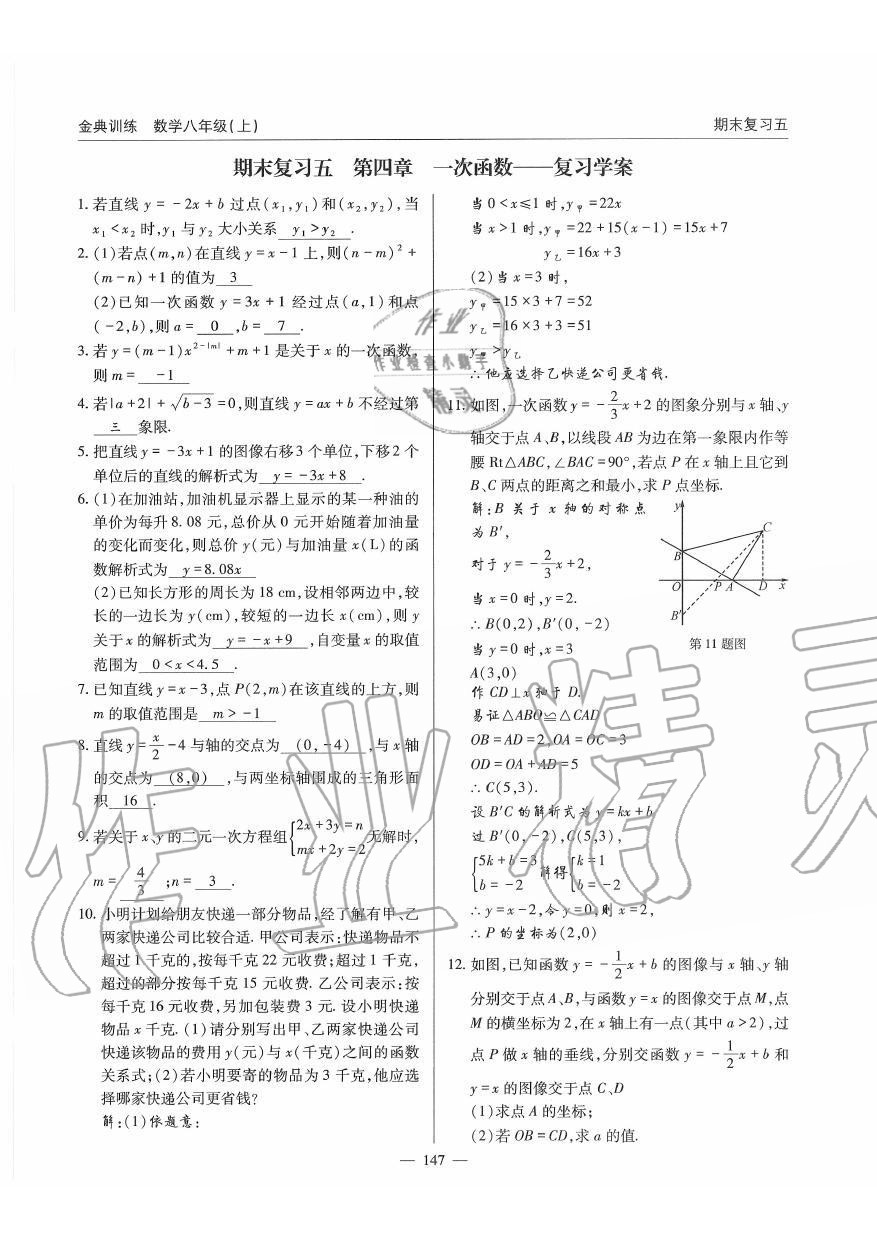 金典训练　数学八年级(上)
期末复习五
期末复习五　第四章　一次函数——复习学案
1. 若直线 y = -2x + b 过点(x₁,y₁)和(x₂,y₂),当
x₁<x₂ 时,y₁ 与 y₂ 大小关系 y₁>y₂ .
2. (1)若点(m,n)在直线 y=x-1 上,则(n-m)²+
(m-n)+1 的值为 3
(2)已知一次函数 y=3x+1 经过点(a,1)和点
(-2,b),则 a= 0 ,b= 7 .
3. 若 y=(m-1)x^{2-|m|}+m+1 是关于 x 的一次函数,
则 m= -1
4. 若|a+2|+√(b-3)=0,则直线 y=ax+b 不经过第
三 象限.
5. 把直线 y=-3x+1 的图像右移 3 个单位,下移 2 个
单位后的直线的解析式为 y=-3x+8 .
6. (1)在加油站,加油机显示器上显示的某一种油的
单价为每升 8.08 元,总价从 0 元开始随着加油量
的变化而变化,则总价 y(元)与加油量 x(L)的函
数解析式为 y=8.08x
(2)已知长方形的周长为 18 cm,设相邻两边中,较
长的一边长为 y(cm),较短的一边长 x(cm),则 y
关于 x 的解析式为 y=-x+9 ,自变量 x 的取值
范围为 0<x<4.5 .
7. 已知直线 y=x-3,点 P(2,m)在该直线的上方,则
m 的取值范围是 m>-1
8. 直线 y=x/2-4 与轴的交点为 (0,-4) ,与 x 轴
的交点为 (8,0) ,与两坐标轴围成的三角形面
积 16 .
9. 若关于 x、y 的二元一次方程组{2x+3y=n
mx+2y=2 无解时,
m= 4/3 ;n= 3 .
10. 小明计划给朋友快递一部分物品,经了解有甲、乙
两家快递公司比较合适. 甲公司表示:快递物品不
超过 1 千克的,按每千克 22 元收费;超过 1 千克,
超过的部分按每千克 15 元收费. 乙公司表示:按
每千克 16 元收费,另加包装费 3 元. 设小明快递
物品 x 千克. (1)请分别写出甲、乙两家快递公司
快递该物品的费用 y(元)与 x(千克)之间的函数
关系式;(2)若小明要寄的物品为 3 千克,他应选
择哪家快递公司更省钱?
解:(1)依题意:
当 0<x≤1 时,y甲=22x
当 x>1 时,y甲=22+15(x-1)=15x+7
y乙=16x+3
(2)当 x=3 时,
y甲=15×3+7=52
y乙=16×3+3=51
y甲>y乙
∴他应选择乙快递公司更省钱.
11. 如图,一次函数 y=-2/3x+2 的图象分别与 x 轴、y
轴交于点 A、B,以线段 AB 为边在第一象限内作等
腰 Rt△ABC,∠BAC=90°,若点 P 在 x 轴上且它到
B、C 两点的距离之和最小,求 P 点坐标.
解:B 关于 x 轴的对称点
为 B′,
对于 y=-2/3x+2,
当 x=0 时,y=2.
∴B(0,2),B′(0,-2)
当 y=0 时,x=3
A(3,0)
作 CD⊥x 轴于 D.
易证△ABO≌△CAD
OB=AD=2,OA=OC=3
OD=OA+AD=5
∴C(5,3).
设 B′C 的解析式为 y=kx+b
过 B′(0,-2),C(5,3),
{5k+b=3
b=-2 解得{k=1
b=-2
∴y=x-2,令 y=0,则 x=2,
∴P 的坐标为(2,0)
y
C
B
O P A D x
B′
第 11 题图
12. 如图,已知函数 y=-1/2x+b 的图像与 x 轴、y 轴
分别交于点 A、B,与函数 y=x 的图像交于点 M,点
M 的横坐标为 2,在 x 轴上有一点(其中 a>2),过
点 P 做 x 轴的垂线,分别交函数 y=-1/2x+b 和
y=x 的图像交于点 C、D
(1)求点 A 的坐标;
(2)若 OB=CD,求 a 的值.
— 147 —
作业
作业检查小助手
精灵
作业精灵